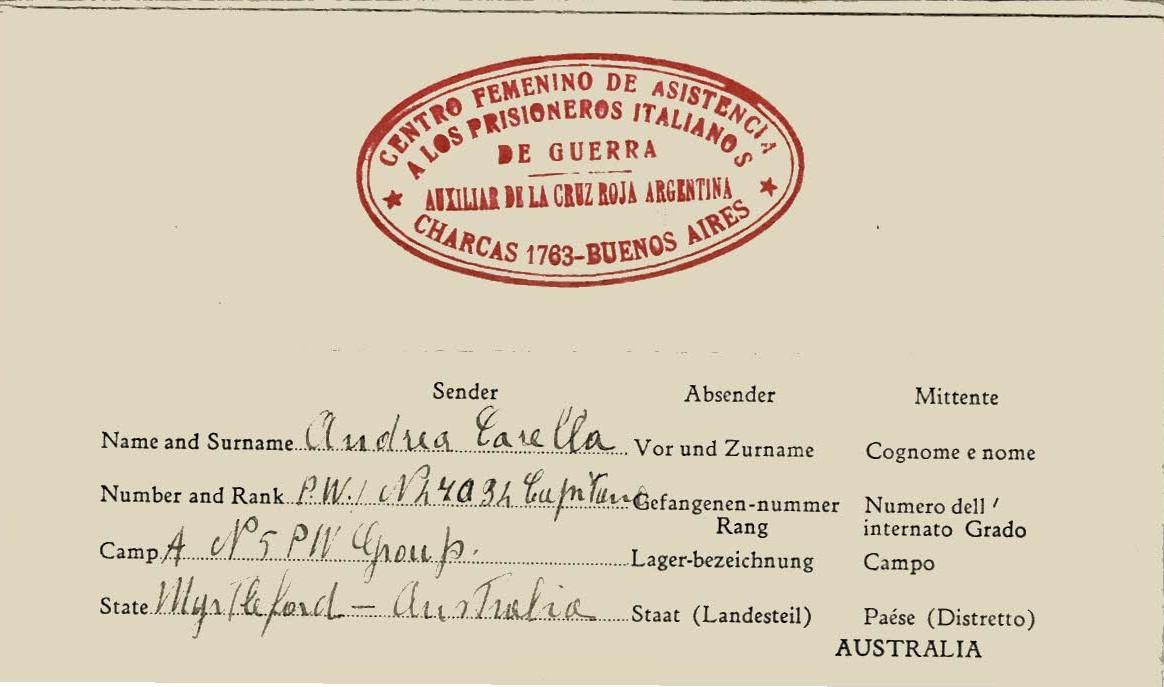 CENTRO FEMENINO DE ASISTENCIA
A LOS PRISIONEROS ITALIANOS
DE GUERRA
AUXILIAR DE LA CRUZ ROJA ARGENTINA
CHARCAS 1763-BUENOS AIRES
Sender Absender Mittente
Name and Surname Andrea Carella Vor und Zurname Cognome e nome
Number and Rank P.W.I Capitano Gefangenen-nummer Numero dell'
Rang internato Grado
Camp A N° 5 PW Group. Lager-bezeichnung Campo
State Myrtleford - Australia Staat (Landesteil) Paése (Distretto)
AUSTRALIA